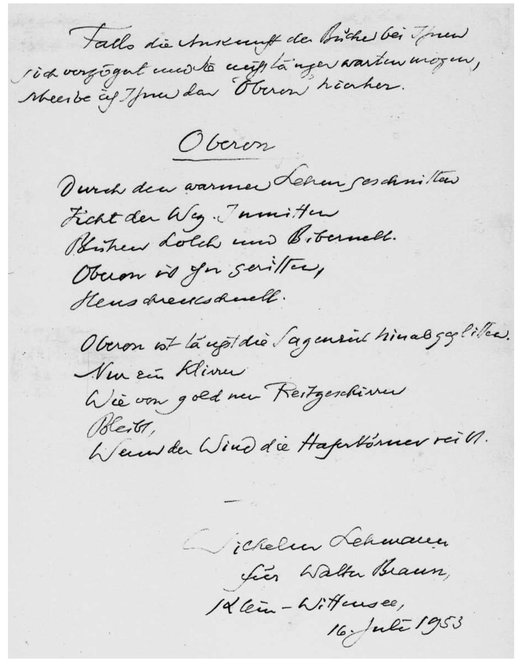 Falls die Ankunft der Bücher bei Ihnen
sich verzögert und Sie nicht länger warten mögen,
schreibe ich Ihnen den "Oberon" hierher.
Oberon
Durch den warmen Lehm geschnitten
Zieht der Weg. Inmitten
Blühen Lolch und Bibernell.
Oberon ist ihn geritten,
Heuschreckschnell.
Oberon ist längst die Sagenzeit hinabgeglitten.
Nur ein Klirren
Wie von goldnen Reitgeschirren
Bleibt,
Wenn der Wind die Haferkörner reibt.
Wilhelm Lehmann
für Walter Braun,
Klein-Wittensee,
16. Juli 1953